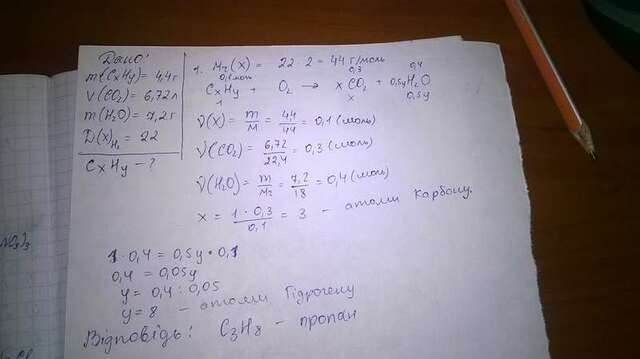 Дано:
m(CxHy) = 4,4 г
V(CO2) = 6,72 л
m(H2O) = 7,2 г
D(x)H2 = 22
CxHy - ?
1. Mr(x) = 22 · 2 = 44 г/моль
0,1 моль 0,3 0,4
CxHy + O2 → x CO2 + 0,5y H2O
1 x 0,5y
ν(x) = m/M = 44/44 = 0,1 (моль)
ν(CO2) = 6,72/22,4 = 0,3 (моль)
ν(H2O) = m/Mr = 7,2/18 = 0,4 (моль)
x = 1 · 0,3/0,1 = 3 - атоми Карбону.
1 · 0,4 = 0,5y · 0,1
0,4 = 0,05y
y = 0,4 : 0,05
y = 8 - атоми Гідрогену
Відповідь: C3H8 - пропан